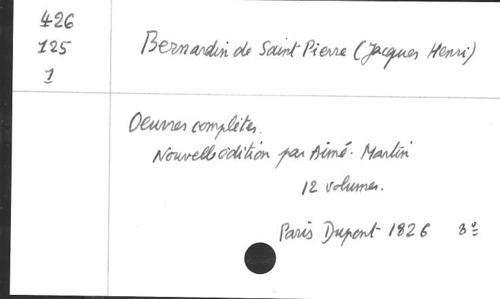 426
125
1
Bernardin de Saint Pierre (Jacques Henri)
Oeuvres complètes.
Nouvelle édition par Aimé-Martin
12 volumes.
Paris Dupont 1826 8º